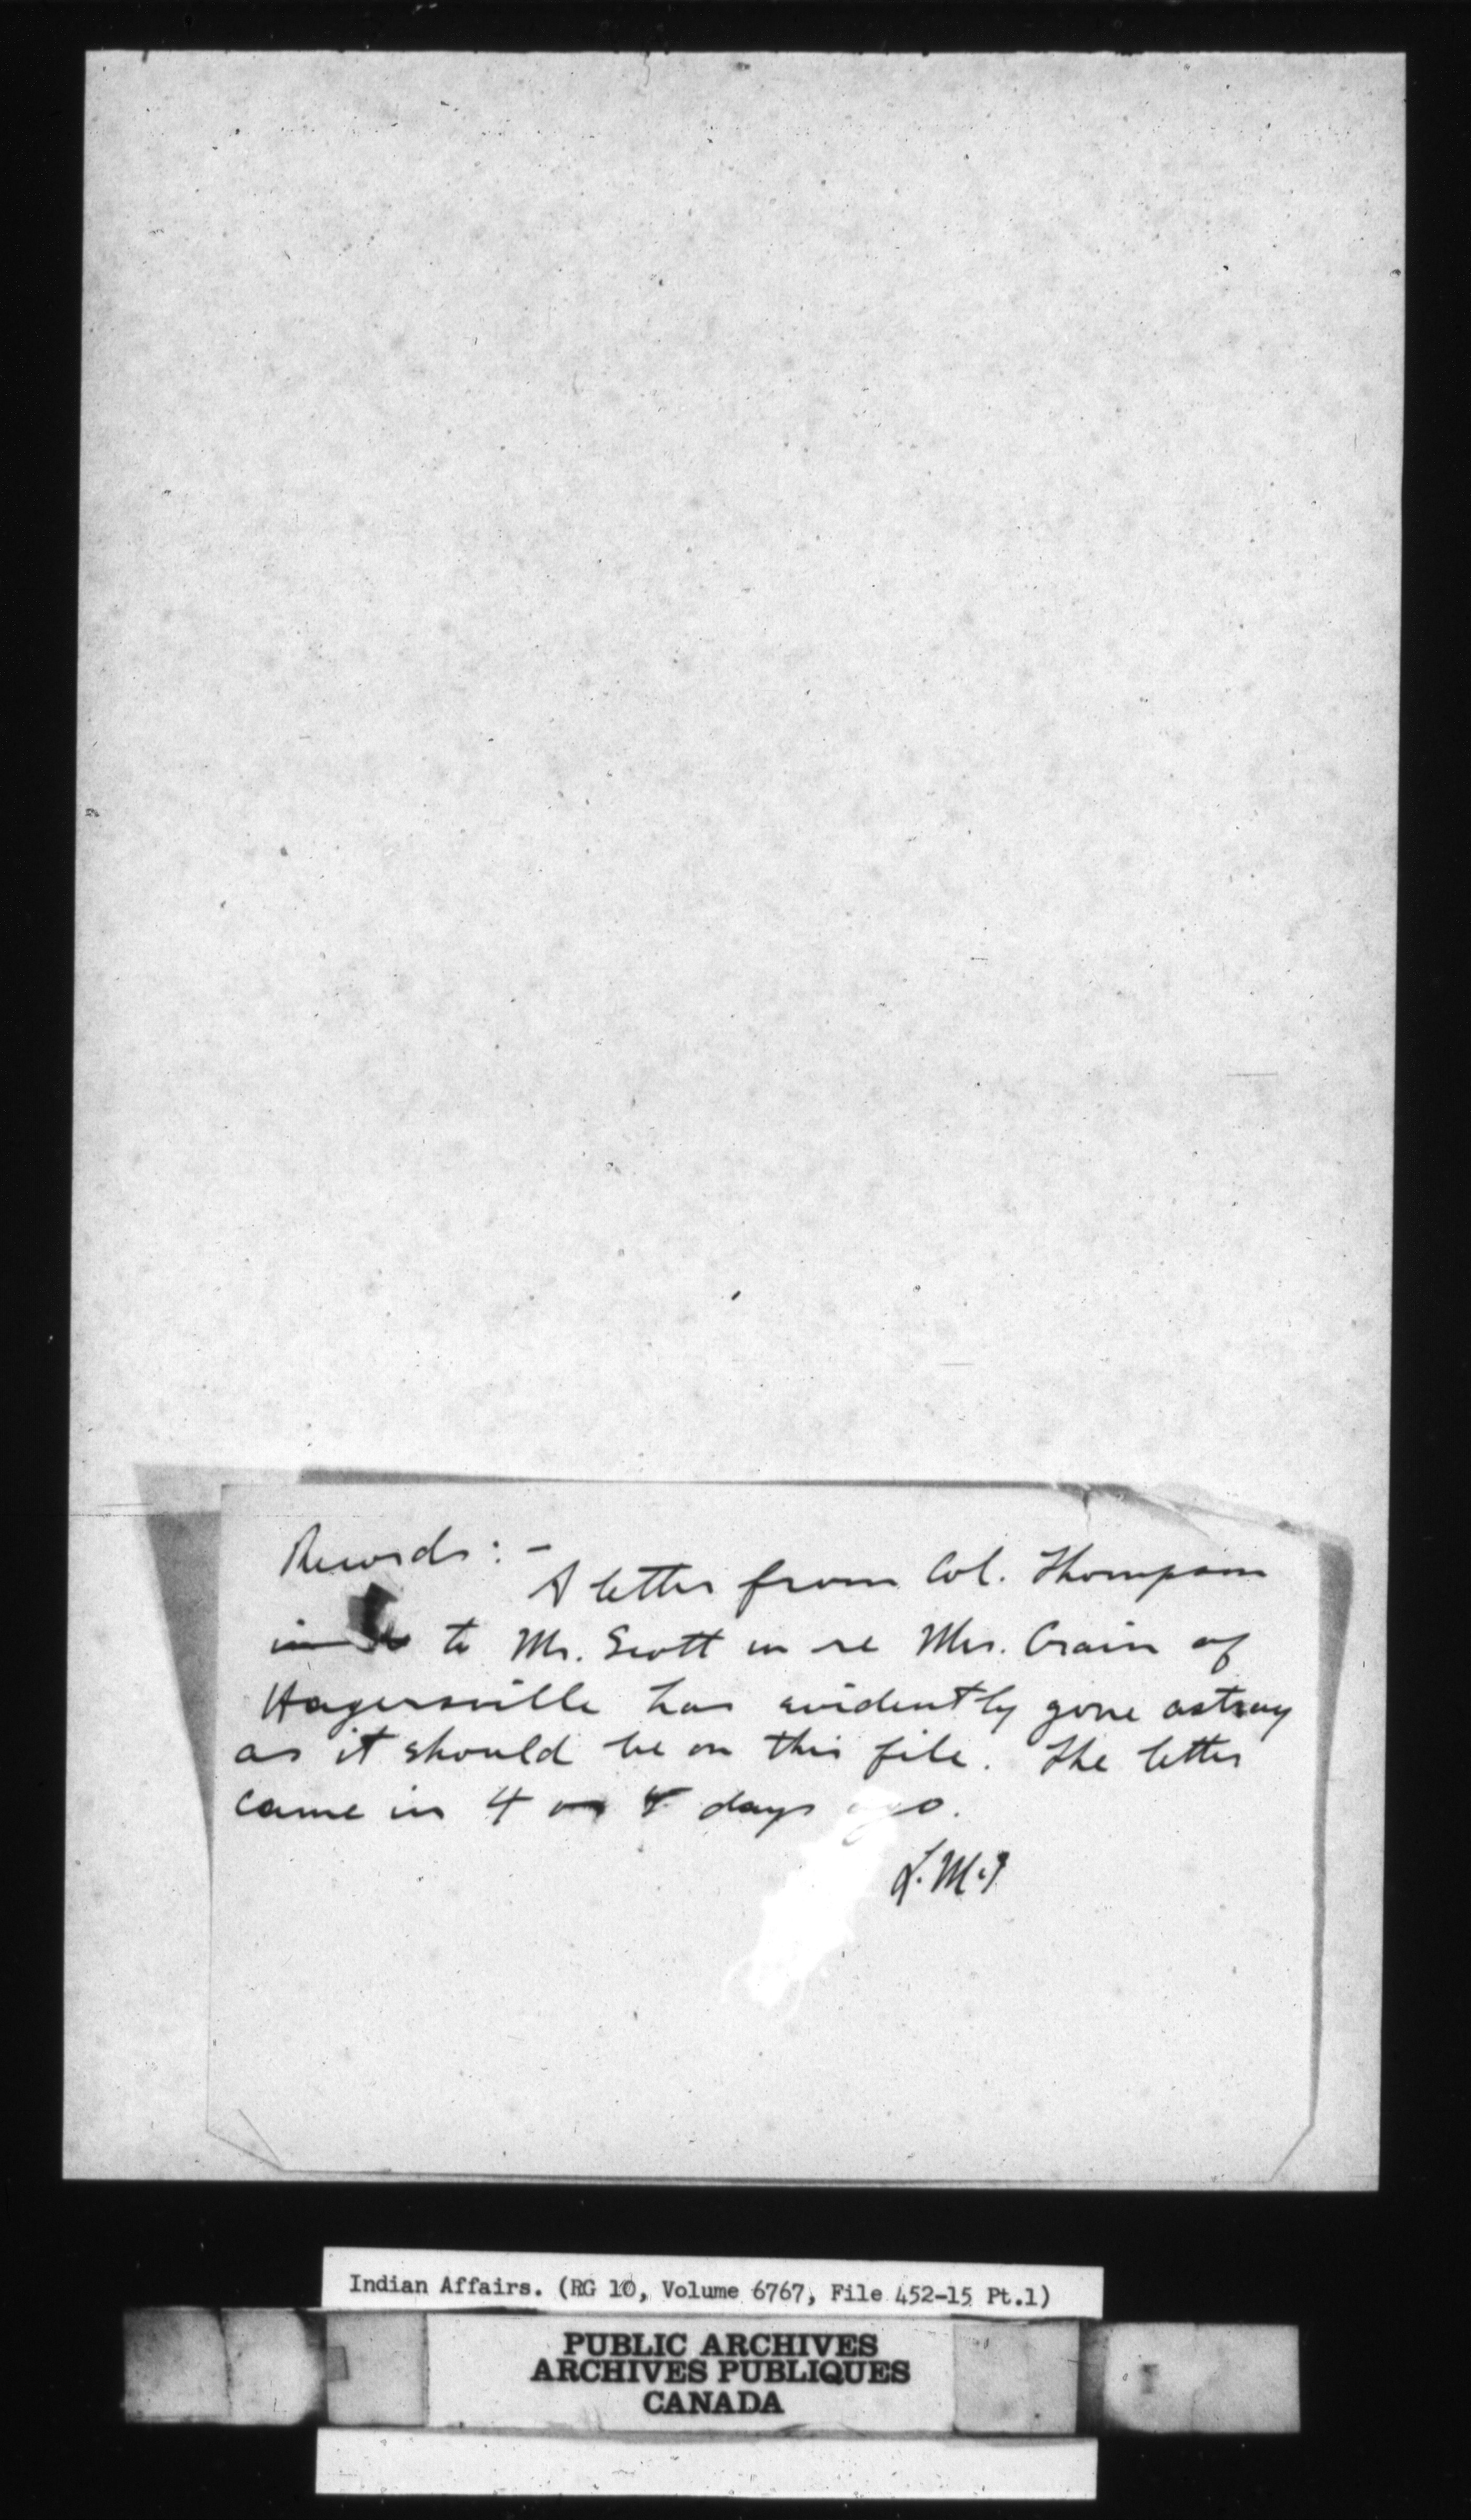 Records:-
A letter from Col. Thompson
to Mr. Scott in re Mrs. Crain of
Hagersville has evidently gone astray
as it should be on this file. The letter
came in 4 or days ago.
Indian Affairs. (RG 10, Volume 6767, File 452-15 Pt.1)
PUBLIC ARCHIVES
ARCHIVES PUBLIQUES
CANADA